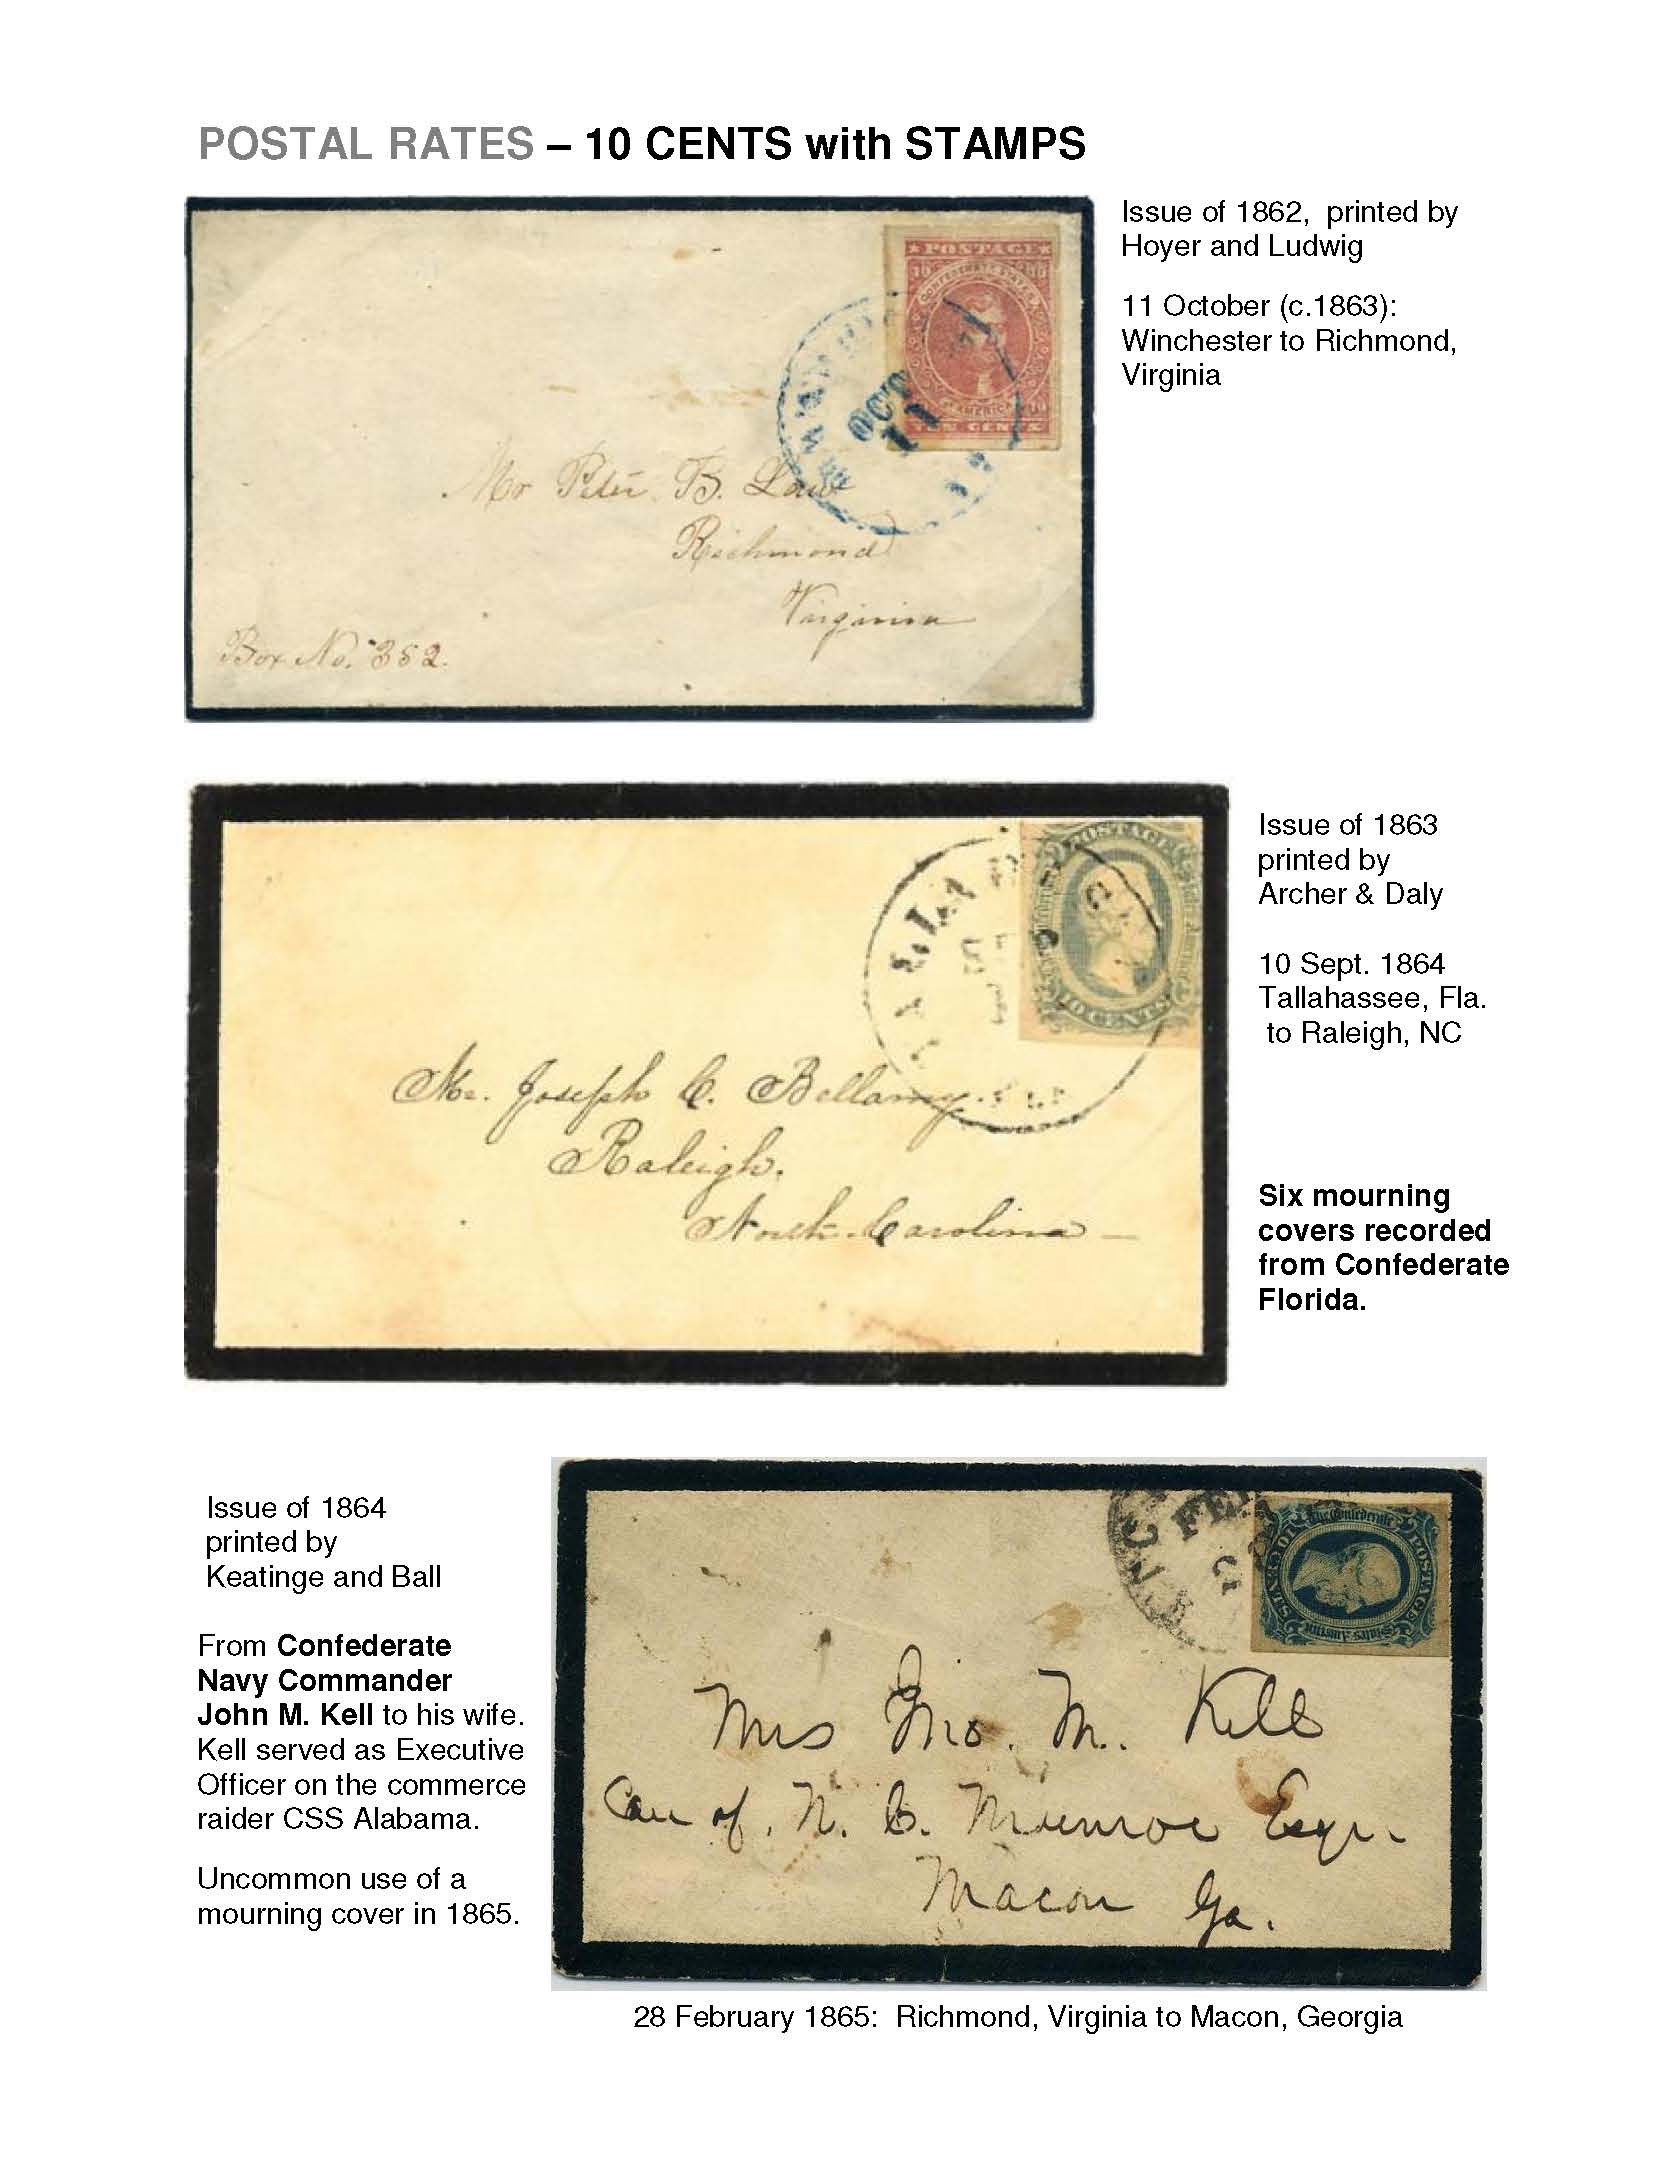 POSTAL RATES – 10 CENTS with STAMPS
Issue of 1862, printed by
Hoyer and Ludwig
11 October (c.1863):
Winchester to Richmond,
Virginia
POSTAGE
TEN CENTS
OCT
11
Mr Peter B. Law
Richmond
Virginia
Box No. 352.
Issue of 1863
printed by
Archer & Daly
10 Sept. 1864
Tallahassee, Fla.
to Raleigh, NC
Six mourning
covers recorded
from Confederate
Florida.
POSTAGE
10 CENTS
Mr. Joseph C. Bellamy.
Raleigh.
North-Carolina
Issue of 1864
printed by
Keatinge and Ball
From Confederate
Navy Commander
John M. Kell to his wife.
Kell served as Executive
Officer on the commerce
raider CSS Alabama.
Uncommon use of a
mourning cover in 1865.
POSTAGE
Mrs Jno. M. Kell
Care of. N. C. Munroe Esqr.
Macon Ga.
28 February 1865: Richmond, Virginia to Macon, Georgia